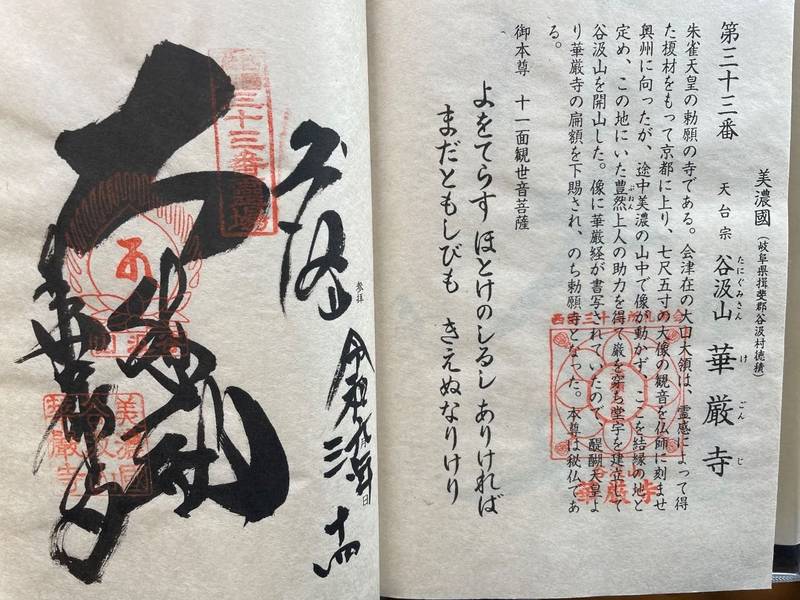 美濃國(岐阜県揖斐郡谷汲村徳積)
第三十三番 天台宗 谷汲山 華厳寺
たにぐみさん けごんじ
朱雀天皇の勅願の寺である。会津在の大口大領は、霊感によって得
た榎材をもって京都に上り、七尺五寸の大像の観音を仏師に刻ませ
奥州に向ったが、途中美濃の山中で像が動かず、ここを結縁の地と
定め、この地にいた豊然上人の助力を得て巌を穿ち堂宇を建立して
ぶねん
谷汲山を開山した。像に華厳経が書写されていたので、醍醐天皇よ
り華厳寺の扁額を下賜され、のち勅願寺となった。本尊は秘仏であ
る。
御本尊 十一面観世音菩薩
よをてらす ほとけのしるし ありければ
まだともしびも きえぬなりけり
西国三十三所札所会
谷汲山
華厳寺
参拝
令和三年
日
十四
三十三番霊場
谷汲山
美濃國
谷汲
華厳寺